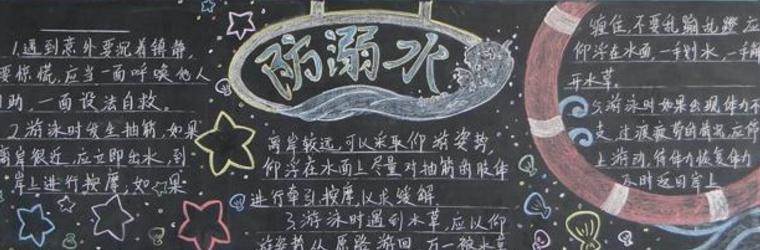 防溺水
1.遇到意外要沉着镇静,
要惊慌,应当一面呼唤他人
助,一面设法自救。
2.游泳时发生抽筋,如果
离岸很近,应立即出水,到
岸上进行按摩,如果
离岸较远,可以采取仰游姿势,
仰浮在水面上尽量对抽筋的肢体
进行牵引按摩,以求缓解。
3.游泳时遇到水草,应以仰
游姿势从原路游回,万一被水草
缠住,不要乱蹦乱蹬,应
仰浮在水面,一手划水,一手解
开水草。
5.游泳时如果出现体力不
支,过渡疲劳的情况,应停
上游动,待体力恢复体力
及时返回岸上